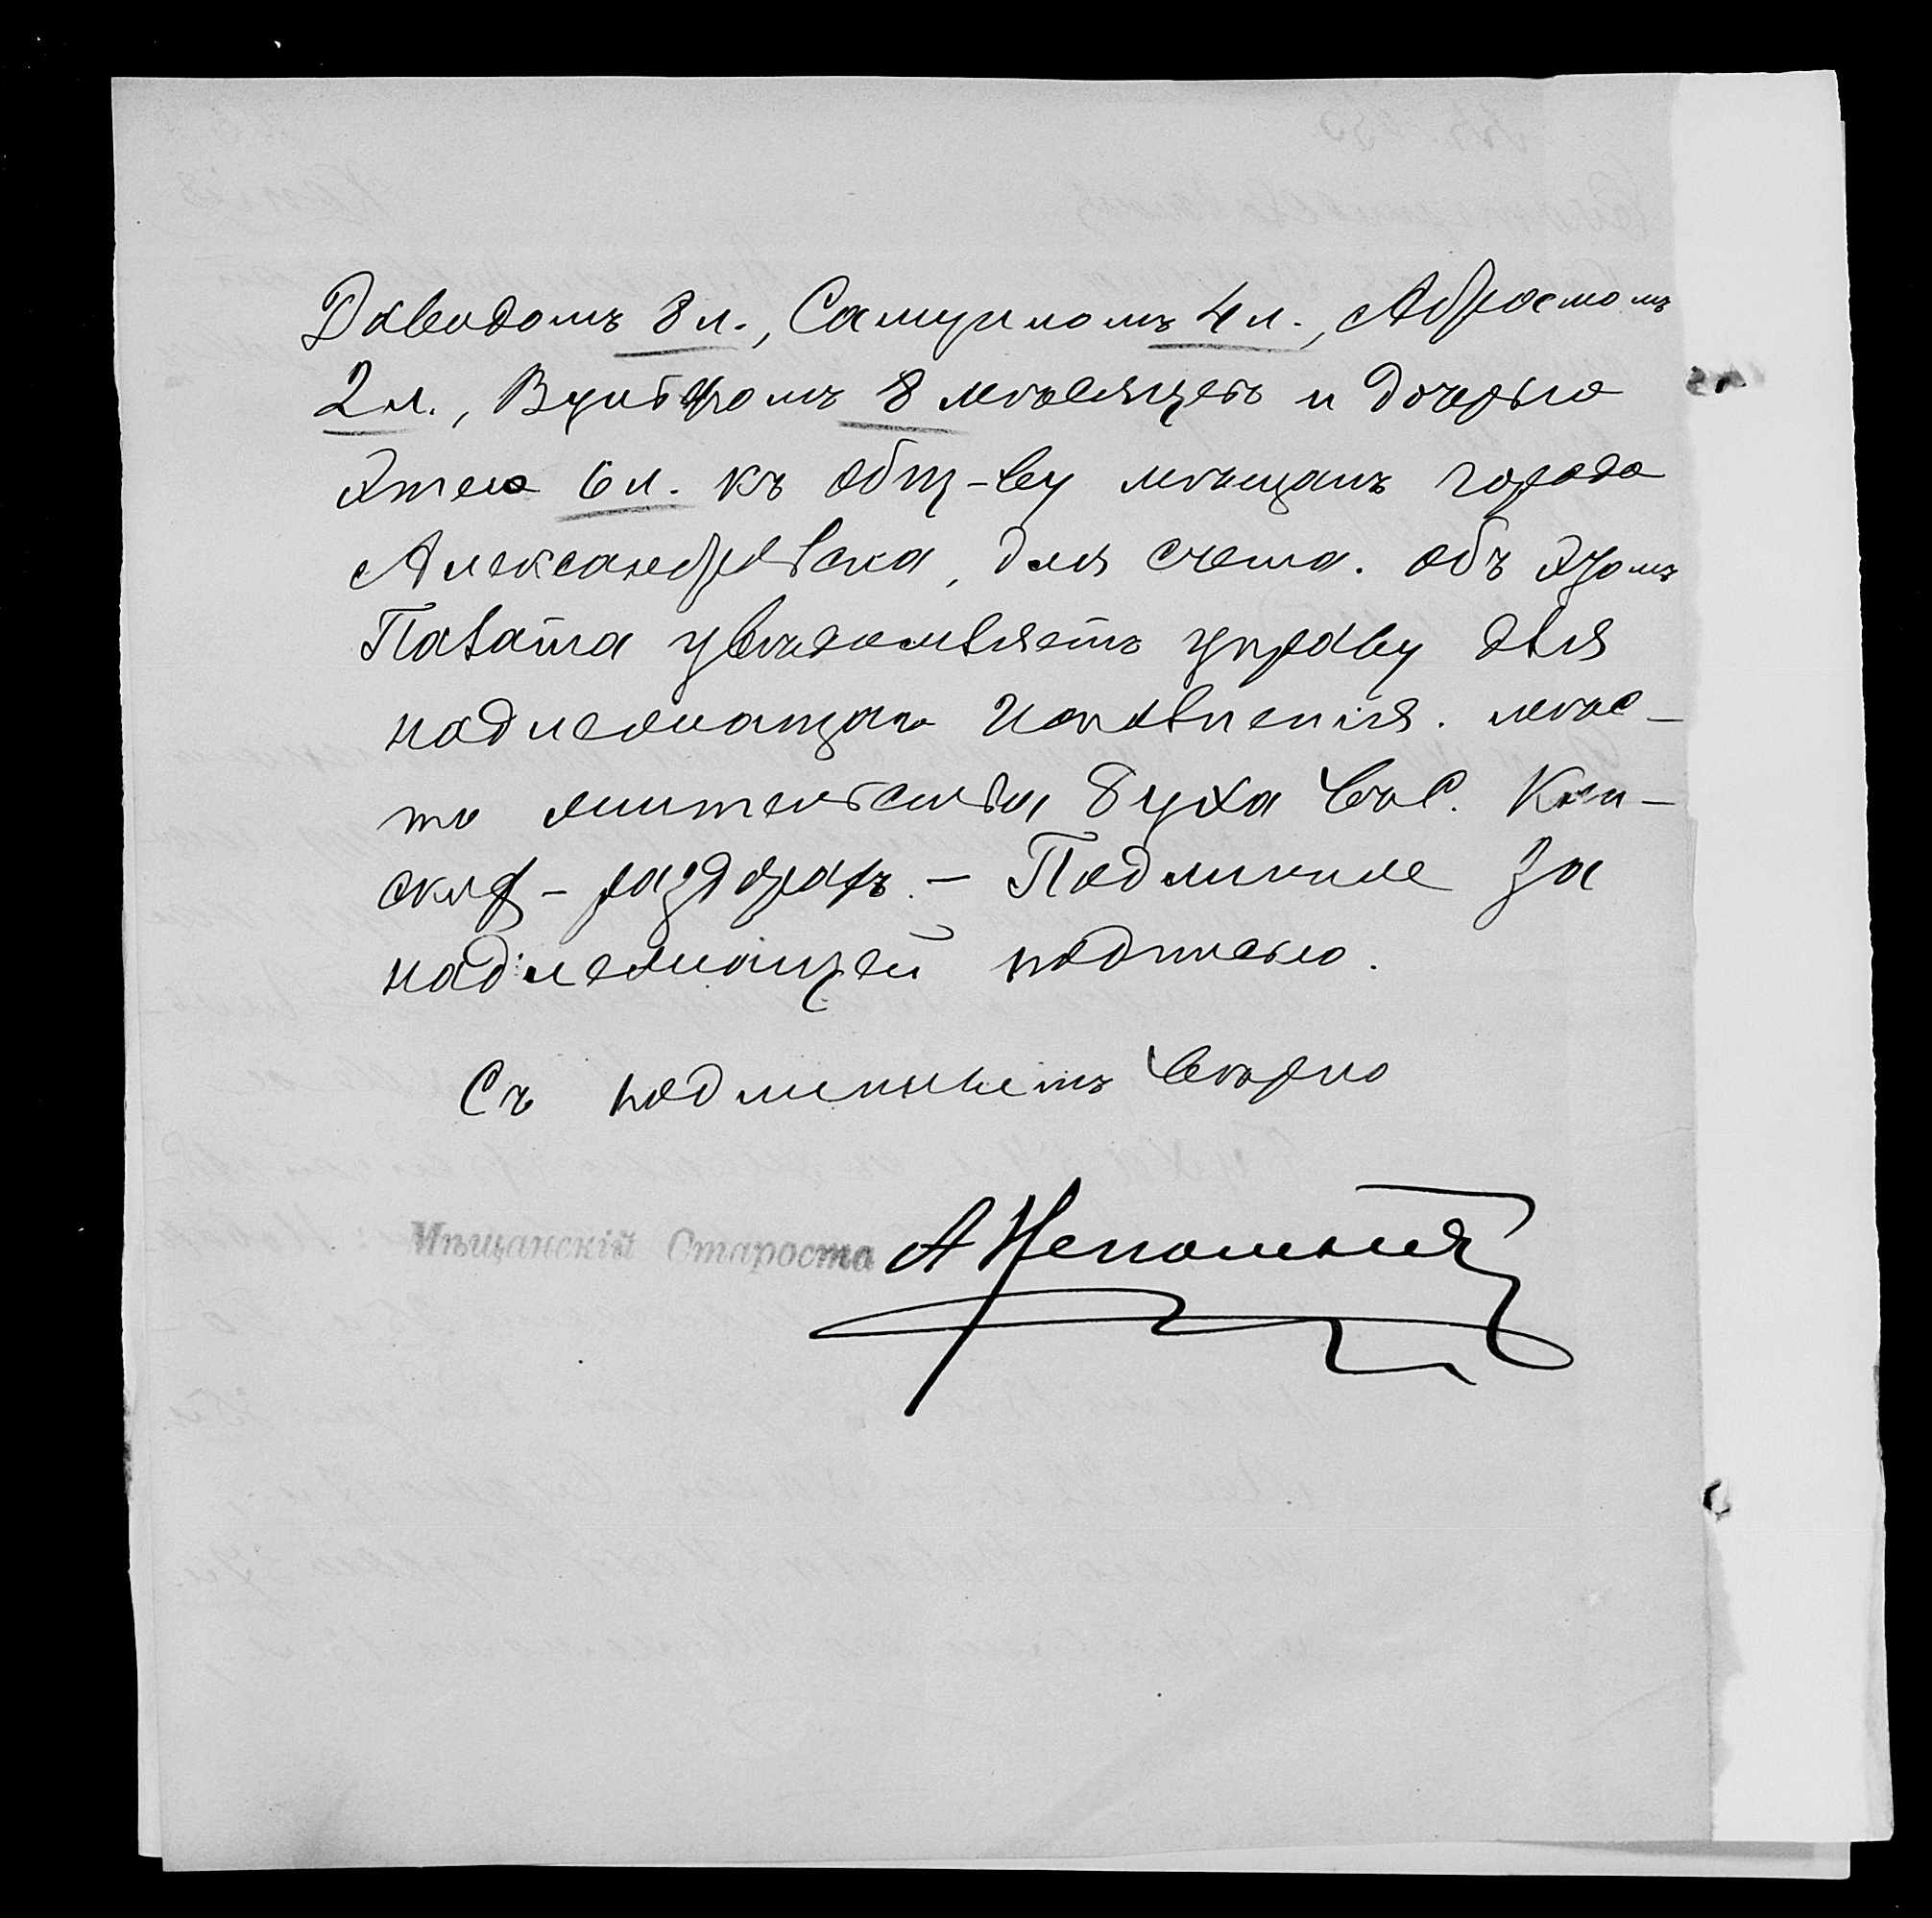 Давидомъ 8 л., Самуиломъ 4 л., Абрамомъ
2 л., Вульфомъ 8 мѣсяцевъ и дочерью
Этею 6 л. къ общ-ву мѣщанъ города
Александровска, для счета. Объ этомъ
Палата увѣдомляетъ управу для
надлежащаго исполненія. Мѣс-
то жительства Буха въ с. Кич-
скаф-раздорахъ. — Подлинное за
надлежащей подписью.
Съ подлиннымъ вѣрно
Мѣщанскій Староста А Непомня